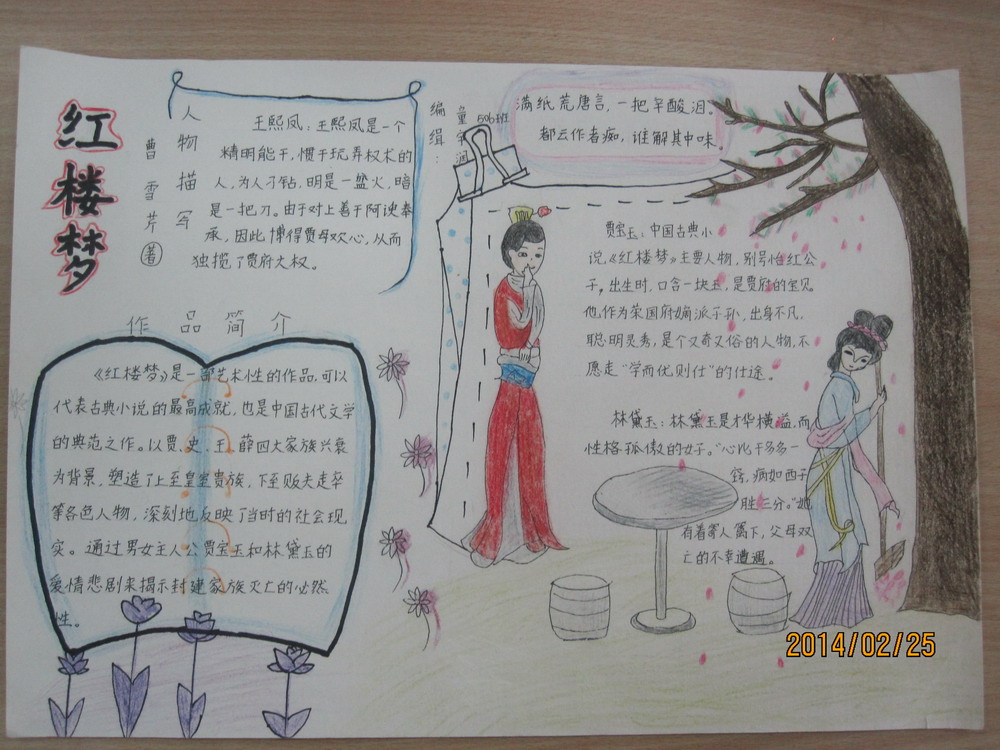 红楼梦
曹雪芹著
人物描写
王熙凤：王熙凤是一个
精明能干，惯于玩弄权术的
人，为人刁钻，明是一盆火，暗
是一把刀。由于对上善于阿谀奉
承，因此博得贾母欢心，从而
独揽了贾府大权。
编辑：
506班
满纸荒唐言，一把辛酸泪。
都云作者痴，谁解其中味。
作品简介
《红楼梦》是一部艺术性的作品，可以
代表古典小说的最高成就，也是中国古代文学
的典范之作。以贾、史、王、薛四大家族兴衰
为背景，塑造了上至皇室贵族，下至贩夫走卒
等各色人物，深刻地反映了当时的社会现
实。通过男女主人公贾宝玉和林黛玉的
爱情悲剧来揭示封建家族灭亡的必然
性。
贾宝玉：中国古典小
说，《红楼梦》主要人物，别号怡红公
子，出生时，口含一块玉，是贾府的宝贝
他作为荣国府嫡派子孙，出身不凡，
聪明灵秀，是个又奇又俗的人物，不
愿走“学而优则仕”的仕途。
林黛玉：林黛玉是才华横溢，而
性格孤傲的女子。“心比干多多一
窍，病如西子
胜三分。”她
有着寄人篱下，父母双
亡的不幸遭遇。
2014/02/25